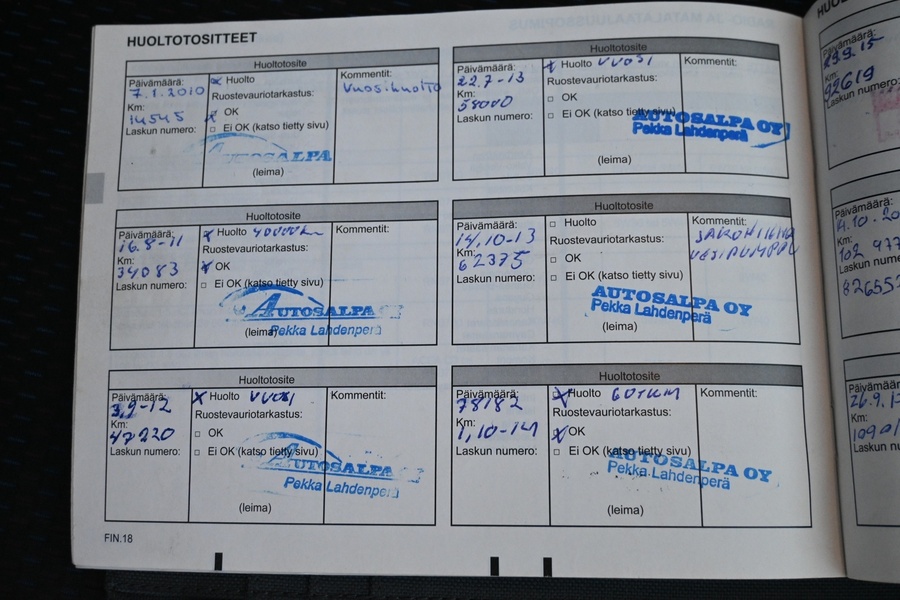 HUOLTOTOSITTEET
Huoltotosite
Päivämäärä:
7.1.2010
Km:
14545
Laskun numero:
x Huolto
Ruostevauriotarkastus:
x OK
□ Ei OK (katso tietty sivu)
AUTOSALPA
(leima)
Kommentit:
Vuosihuolto
Huoltotosite
Päivämäärä:
16.8-11
Km:
34083
Laskun numero:
x Huolto
Ruostevauriotarkastus:
x OK
□ Ei OK (katso tietty sivu)
AUTOSALPA
Pekka Lahdenperä
(leima)
Kommentit:
Huoltotosite
Päivämäärä:
3.9-12
Km:
47220
Laskun numero:
x Huolto VUOSI
Ruostevauriotarkastus:
□ OK
□ Ei OK (katso tietty sivu)
AUTOSALPA
Pekka Lahdenperä
(leima)
Kommentit:
FIN.18
Huoltotosite
Päivämäärä:
22.7-13
Km:
58000
Laskun numero:
x Huolto VUOSI
Ruostevauriotarkastus:
□ OK
□ Ei OK (katso tietty sivu)
AUTOSALPA OY
Pekka Lahdenperä
(leima)
Kommentit:
Huoltotosite
Päivämäärä:
14,10-13
Km:
62375
Laskun numero:
□ Huolto
Ruostevauriotarkastus:
□ OK
□ Ei OK (katso tietty sivu)
AUTOSALPA OY
Pekka Lahdenperä
(leima)
Kommentit:
VESIPUMPPU
Huoltotosite
Päivämäärä:
78182
Km:
1,10-14
Laskun numero:
x Huolto 60TKM
Ruostevauriotarkastus:
x OK
□ Ei OK (katso tietty sivu)
AUTOSALPA OY
Pekka Lahdenperä
(leima)
Kommentit:
Päivämäärä:
Km:
92619
Laskun numero:
Päivämäärä:
Km:
Laskun nume
Päivämäär
Km:
Laskun nu